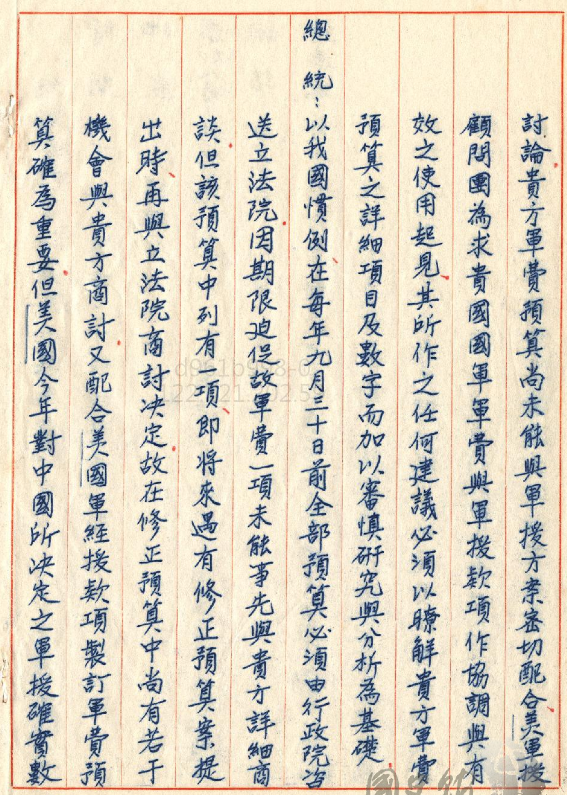 討論貴方軍費預算尚未能與軍援方案密切配合美軍援
顧問團為求貴國國軍軍費與軍援款項作協調與有
效之使用起見其所作之任何建議必須以瞭解貴方軍費
預算之詳細項目及數字而加以審慎研究與分析為基礎
總統：以我國慣例在每年九月三十日前全部預算必須由行政院咨
送立法院因期限迫促故軍費一項未能事先與貴方詳細商
談但該預算中列有一項即將來遇有修正預算案提
出時再與立法院商討決定故在修正預算中尚有若干
機會與貴方商討又配合美國軍經援款項製訂軍費預
算確為重要但美國今年對中國所決定之軍援確實數
國史館